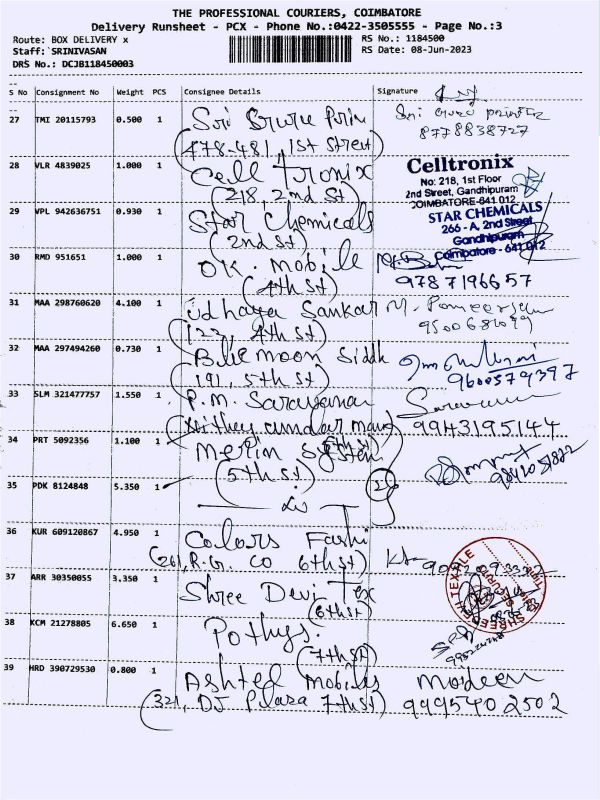 THE PROFESSIONAL COURIERS, COIMBATORE
Delivery Runsheet - PCX - Phone No.:0422-3505555 - Page No.:3
Route: BOX DELIVERY x
RS No.: 1184500
Staff: SRINIVASAN
RS Date: 08-Jun-2023
DRS No.: DCJB118450003
S No Consignment No Weight PCS Consignee Details Signature
27 TMI 20115793 0.500 1 Sri Guru Prin Sri Guru printer
(478-481, 1st street) 8778838727
28 VLR 4839025 1.000 1 Cell Tronix Celltronix
(218, 2nd St) No: 218, 1st Floor
2nd Street, Gandhipuram
COIMBATORE-641 012
29 VPL 942636751 0.930 1 Star Chemicals STAR CHEMICALS
(2nd St) 266 - A, 2nd Street
Gandhipuram
Coimbatore - 641 012
30 RMD 951651 1.000 1 OK. Mobile
(4th St) 9787196657
31 MAA 298760620 4.100 1 Udhaya Sankar
(122, 4th St)
32 MAA 297494260 0.730 1 Blue moon Siddh
(191, 5th St) 9600579397
33 SLM 321477757 1.550 1 P.M. Saravanan
5th St) 9943195144
34 PRT 5092356 1.100 1 Merlin System
(5th St)
35 PDK 8124848 5.350 1
36 KUR 609120867 4.950 1 Colors Fashi
(261, R.G. CO 6th St)
37 ARR 30350055 3.350 1 Shree Devi Tex
(6th St)
SHREE DEVI TEXTILE
38 KCM 21278805 6.650 1 Pothys.
(7th St)
39 HRD 390729530 0.800 1 Ashtel Mobiles
(321, DJ Plaza 7th St) 9995402502